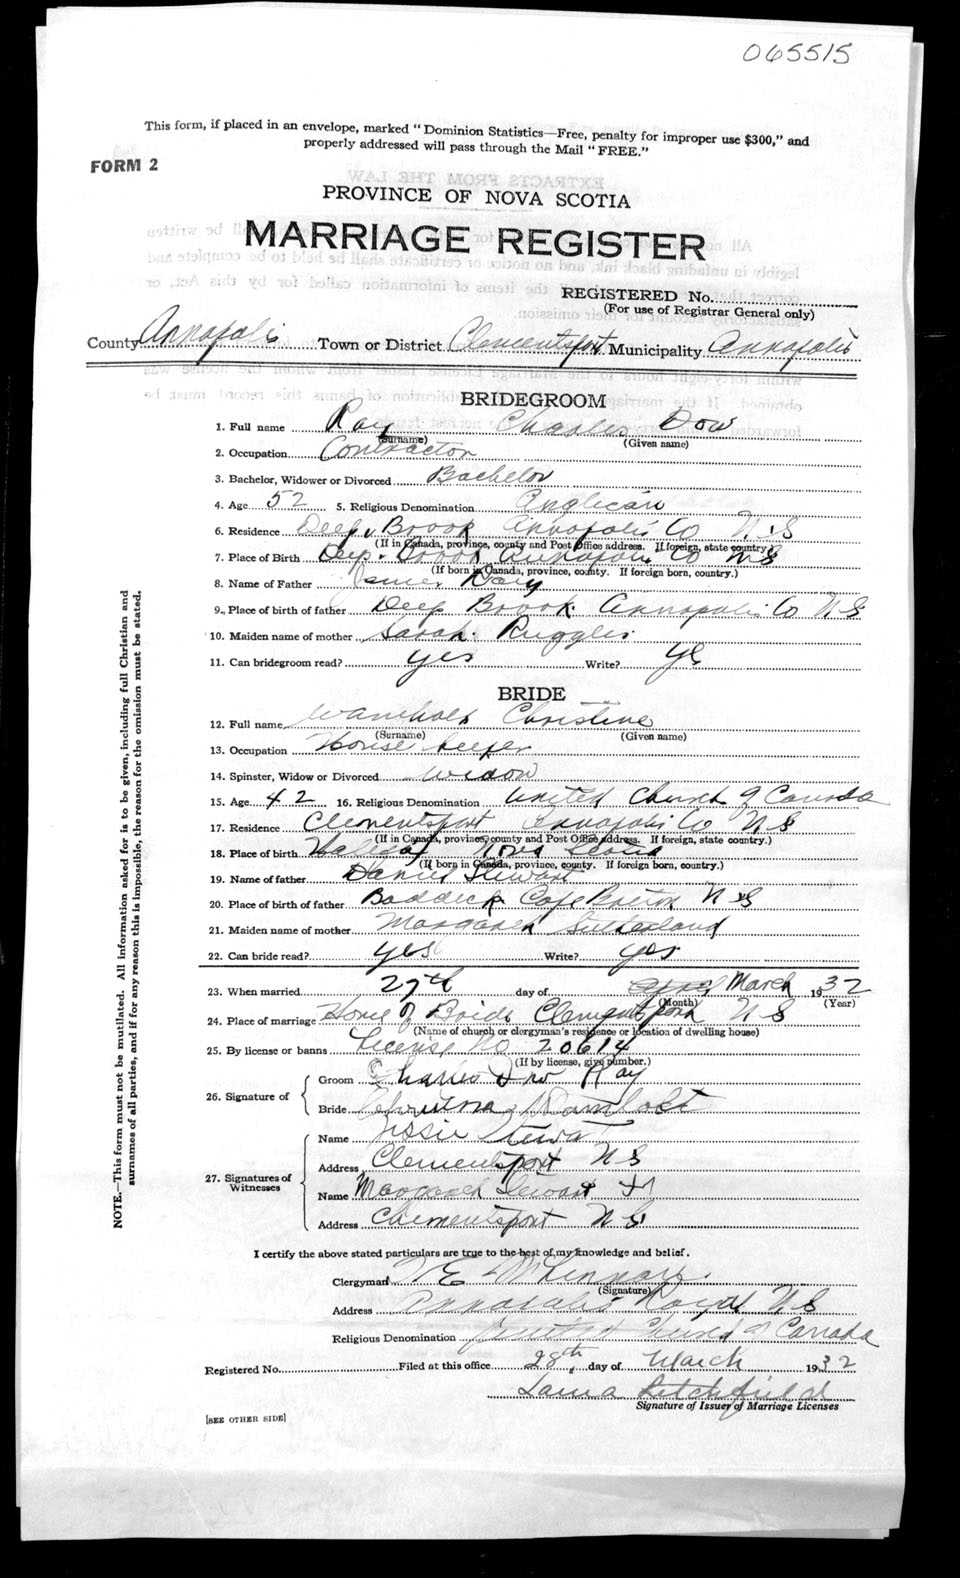 065515
This form, if placed in an envelope, marked "Dominion Statistics—Free, penalty for improper use $300," and
properly addressed will pass through the Mail "FREE."
FORM 2
PROVINCE OF NOVA SCOTIA
MARRIAGE REGISTER
REGISTERED No.
(For use of Registrar General only)
County Annapolis Town or District Clementsport Municipality Annapolis
BRIDEGROOM
1. Full name Ray Charles Dow
(Surname) (Given name)
2. Occupation Contractor
3. Bachelor, Widower or Divorced Bachelor
4. Age 52 5. Religious Denomination Anglican
6. Residence Deep Brook Annapolis Co N.S
(If in Canada, province, county and Post Office address. If foreign, state country.)
7. Place of Birth Deep Brook Annapolis Co NS
(If born in Canada, province, county. If foreign born, country.)
8. Name of Father James Ray
9. Place of birth of father Deep Brook Annapolis Co N.S
10. Maiden name of mother Sarah Ruggles
11. Can bridegroom read? yes Write? yes
BRIDE
12. Full name Christine
(Surname) (Given name)
13. Occupation House keeper
14. Spinster, Widow or Divorced widow
15. Age 42 16. Religious Denomination United Church of Canada
17. Residence Clementsport Annapolis Co NS
(If in Canada, province, county and Post Office address. If foreign, state country.)
18. Place of birth Halifax Nova Scotia
(If born in Canada, province, county. If foreign born, country.)
19. Name of father Daniel Stewart
20. Place of birth of father Baddeck Cape Breton N S
21. Maiden name of mother Margaret Sutherland
22. Can bride read? yes Write? yes
23. When married 27th day of April March 1932
(Month) (Year)
24. Place of marriage Home of Bride Clementsport N S
(Name of church or clergyman's residence or location of dwelling house)
25. By license or banns License No 20614
(If by license, give number.)
26. Signature of
Groom Charles Dow Ray
Bride
27. Signatures of Witnesses
Name Jessie Stewart
Address Clementsport NS
Name Margaret Stewart
Address Clementsport NS
I certify the above stated particulars are true to the best of my knowledge and belief.
Clergyman
(Signature)
Address Annapolis Royal N.S
Religious Denomination United Church of Canada
Registered No. Filed at this office 28th day of March 1932
Laura Litchfield
Signature of Issuer of Marriage Licenses
[SEE OTHER SIDE]
NOTE.—This form must not be mutilated. All information asked for is to be given, including full Christian and
surnames of all parties, and if for any reason this is impossible, the reason for the omission must be stated.